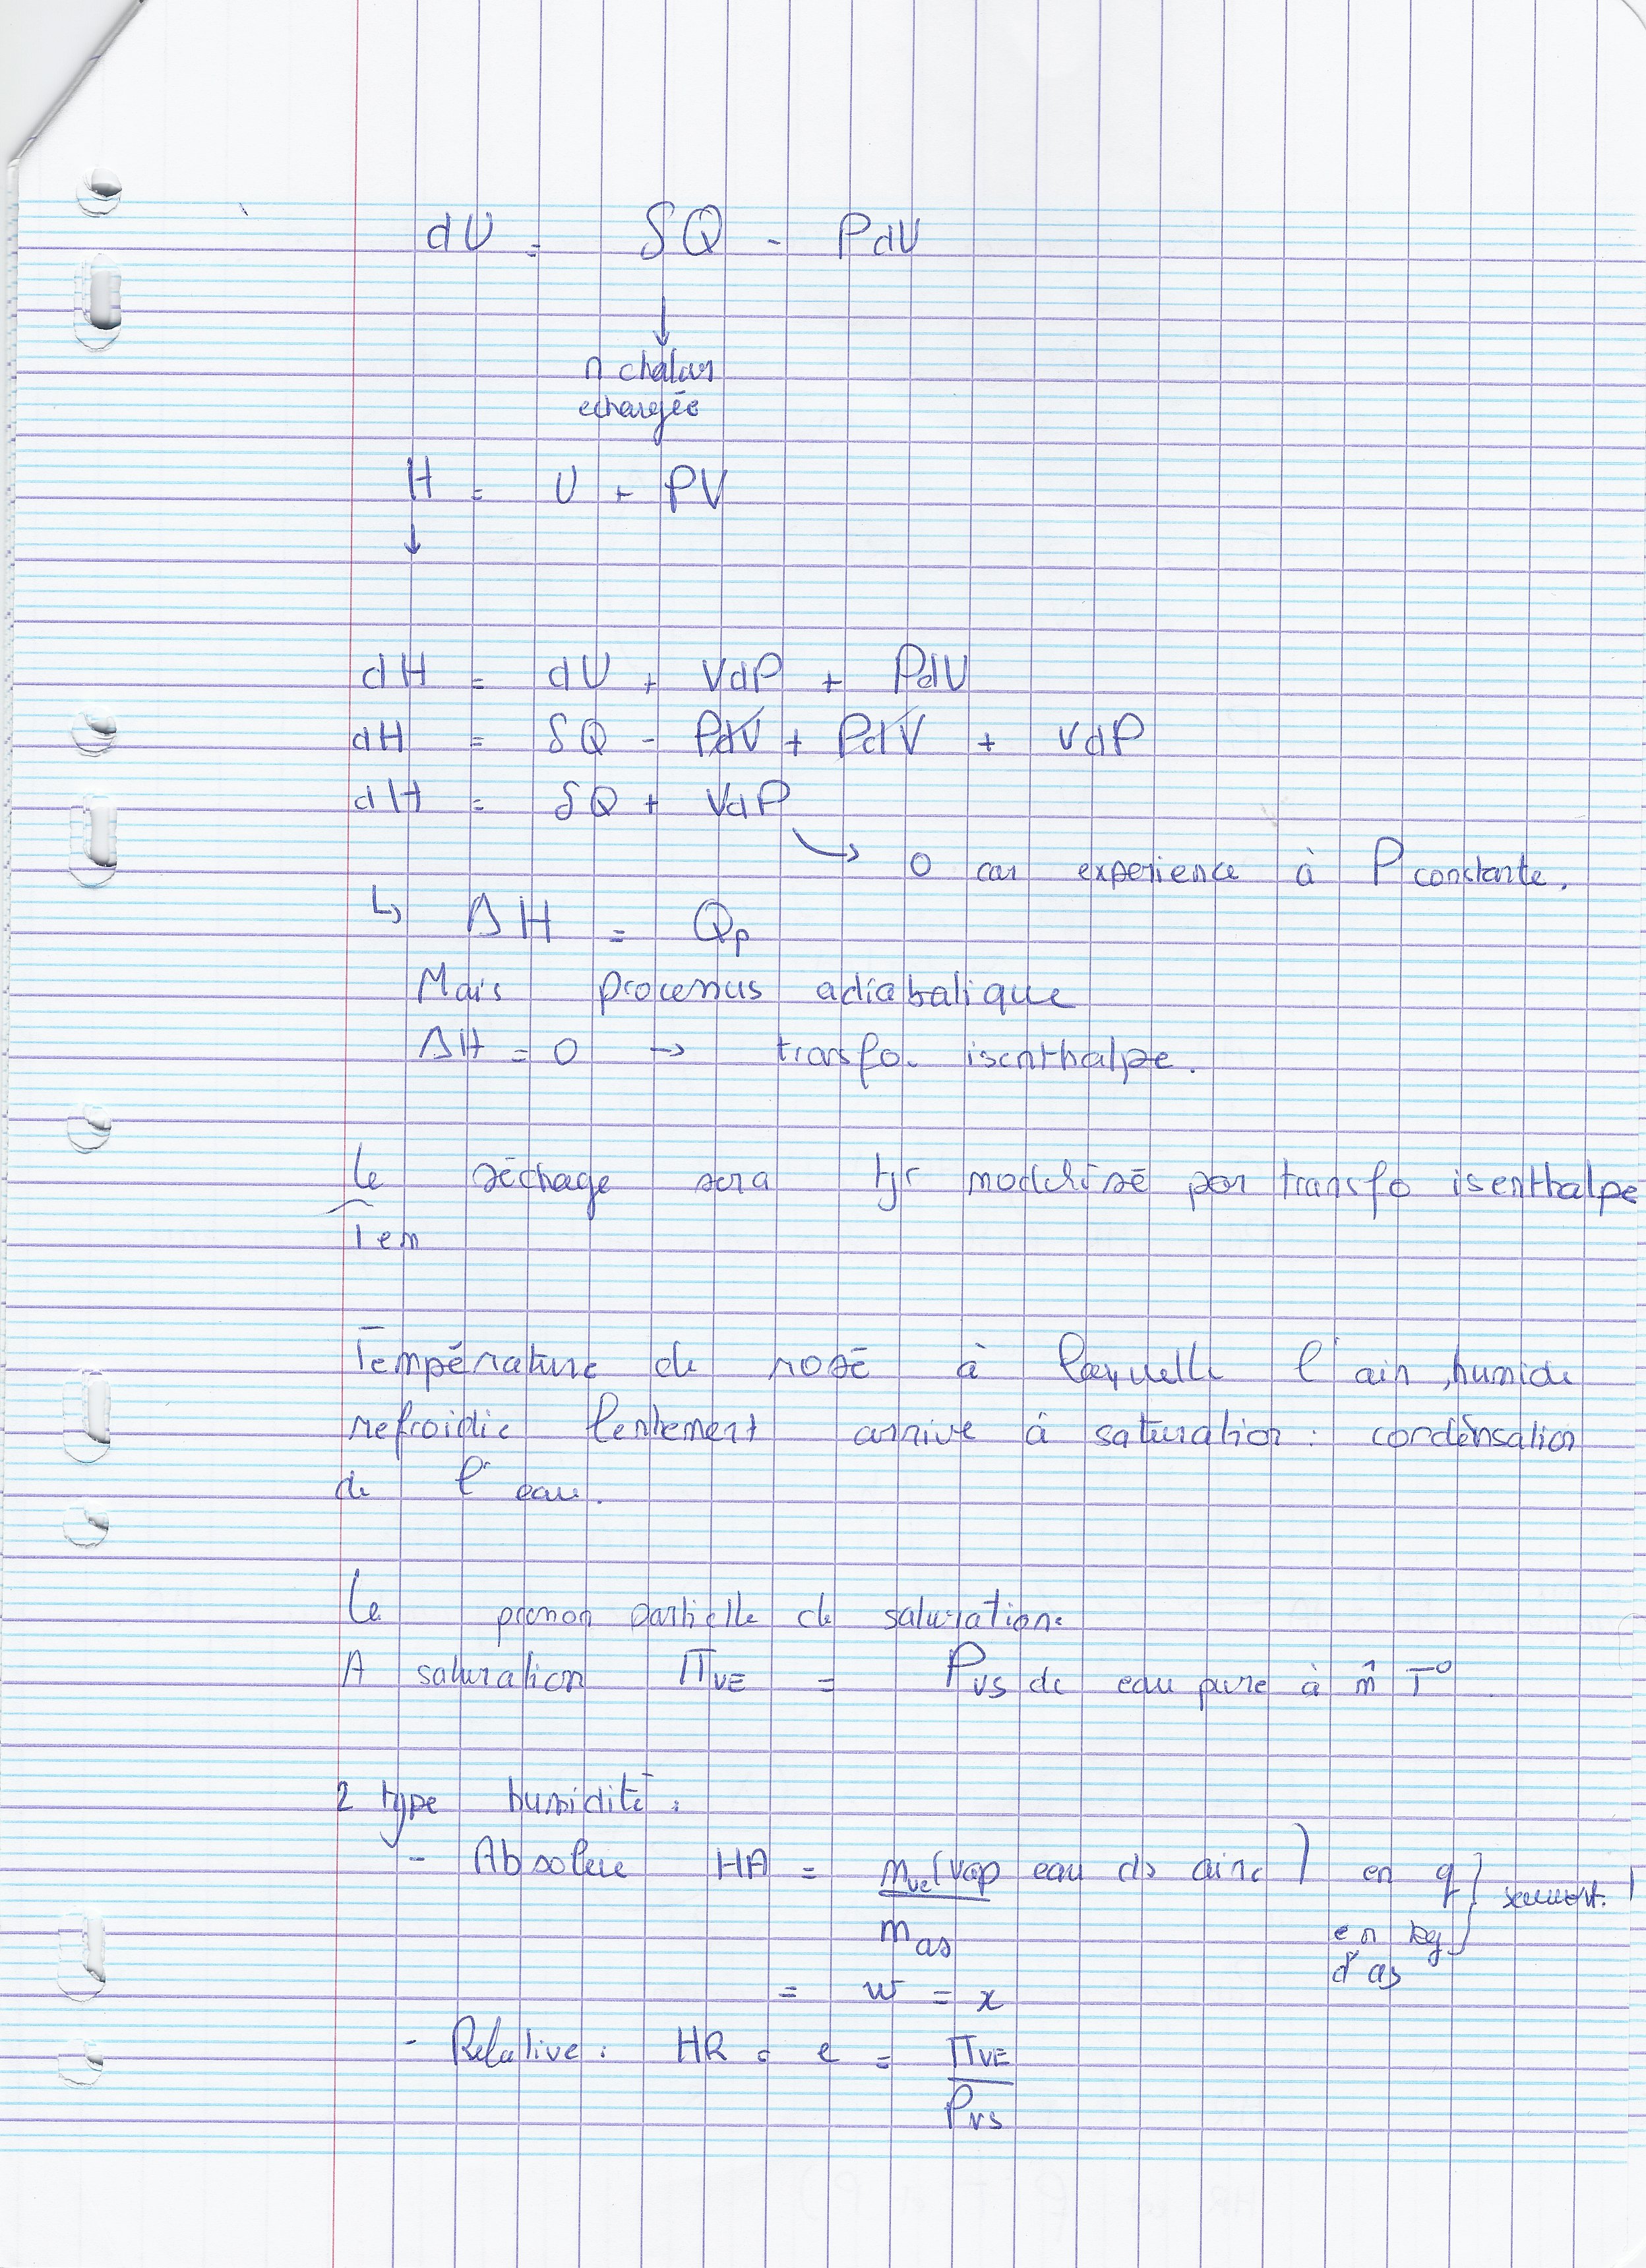 dU = δQ - PdV
↓
n chaleur
echangée
H = U + PV
↓
dH = dU + VdP + PdV
dH = δQ - PdV + PdV + VdP
dH = δQ + VdP
→ 0 car experience à P constante.
↳ ΔH = Qp
Mais processus adiabatique
ΔH = 0 → transfo. isenthalpe.
Le séchage sera tjr modélisé par transfo isenthalpe
Tem
Température de rosé à laquelle l'air humide
refroidie lentement arrive à saturation : condensation
de l'eau.
La pression partielle de saturation.
A saturation ΠVE = PVS de eau pure à m̂ T°
2 type humidité :
- Absolue HA = mve (vap eau ds air) en g
mas en kg d'as
= w = x
- Relative : HR = e = ΠVE
PVS